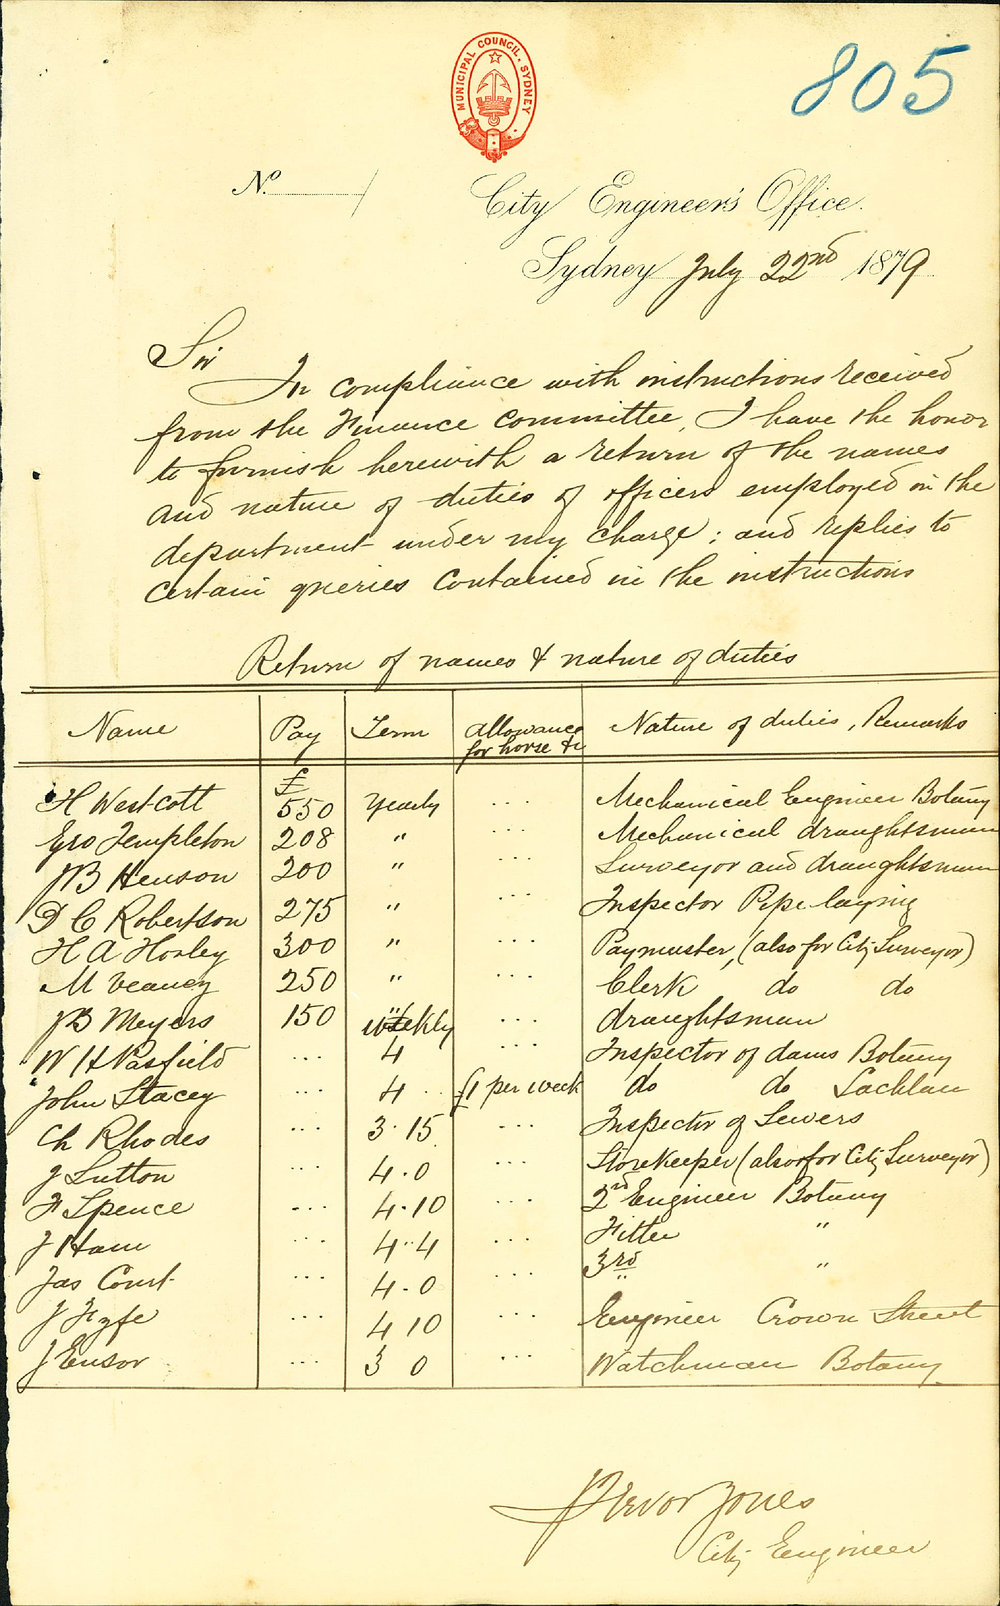 MUNICIPAL COUNCIL. SYDNEY.
805
No.
City Engineer's Office.
Sydney July 22nd 1879
Sir
In compliance with instructions received
from the Finance committee, I have the honor
to furnish herewith a return of the names
and nature of duties of officers employed in the
department under my charge; and replies to
certain queries contained in the instructions
Return of names & nature of duties
Name Pay Term allowance for horse &c Nature of duties, Remarks
£
H Westcott 550 Yearly ... Mechanical Engineer Botany
Geo Templeton 208 " ... Mechanical draughtsman
JB Henson 200 " ... Surveyor and draughtsman
D C Robertson 275 " ... Inspector Pipe laying
H A Horley 300 " ... Paymaster, (also for City Surveyor)
M Veaney 250 " ... Clerk do do
JB Meyers 150 " ... draughtsman
weekly
W H Pasfield ... 4 ... Inspector of dams Botany
John Stacey ... 4 .. £1 per week do do Lachlan
Ch Rhodes ... 3.15 ... Inspector of Sewers
J Sutton ... 4.0 ... Storekeeper (also for City Surveyor)
F Spence ... 4.10 ... 2nd Engineer Botany
J Ham ... 4.4 ... Fitter "
Jas Court ... 4.0 ... 3rd " "
J Fyfe ... 4 10 ... Engineer Crown Street
J Ensor ... 3 0 ... Watchman Botany
Trevor Jones
City Engineer